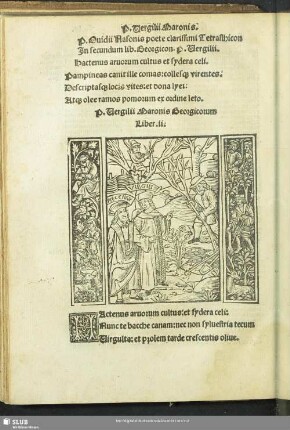 P. Vergilii Maronis.
P. Ouidii Nasonis poete clarissimi Tetrasthicon
In secundum lib. Georgicon. P. Vergilii.
Hactenus aruorum cultus et sydera celi.
Pampineas canit ille comas: collesq; virentes.
Descriptasq; locis vites: et dona lyei:
Atq; olee ramos pomorum ex ordine leto.
P. Vergilii Maronis Georgicorum
Liber .ii.
VIRGILIVS
HActenus aruorum cultus: et sydera celi:
Nunc te bacche canam: nec non syluestria tecum
Virgulta: et prolem tarde crescentis oliue.
SLUB